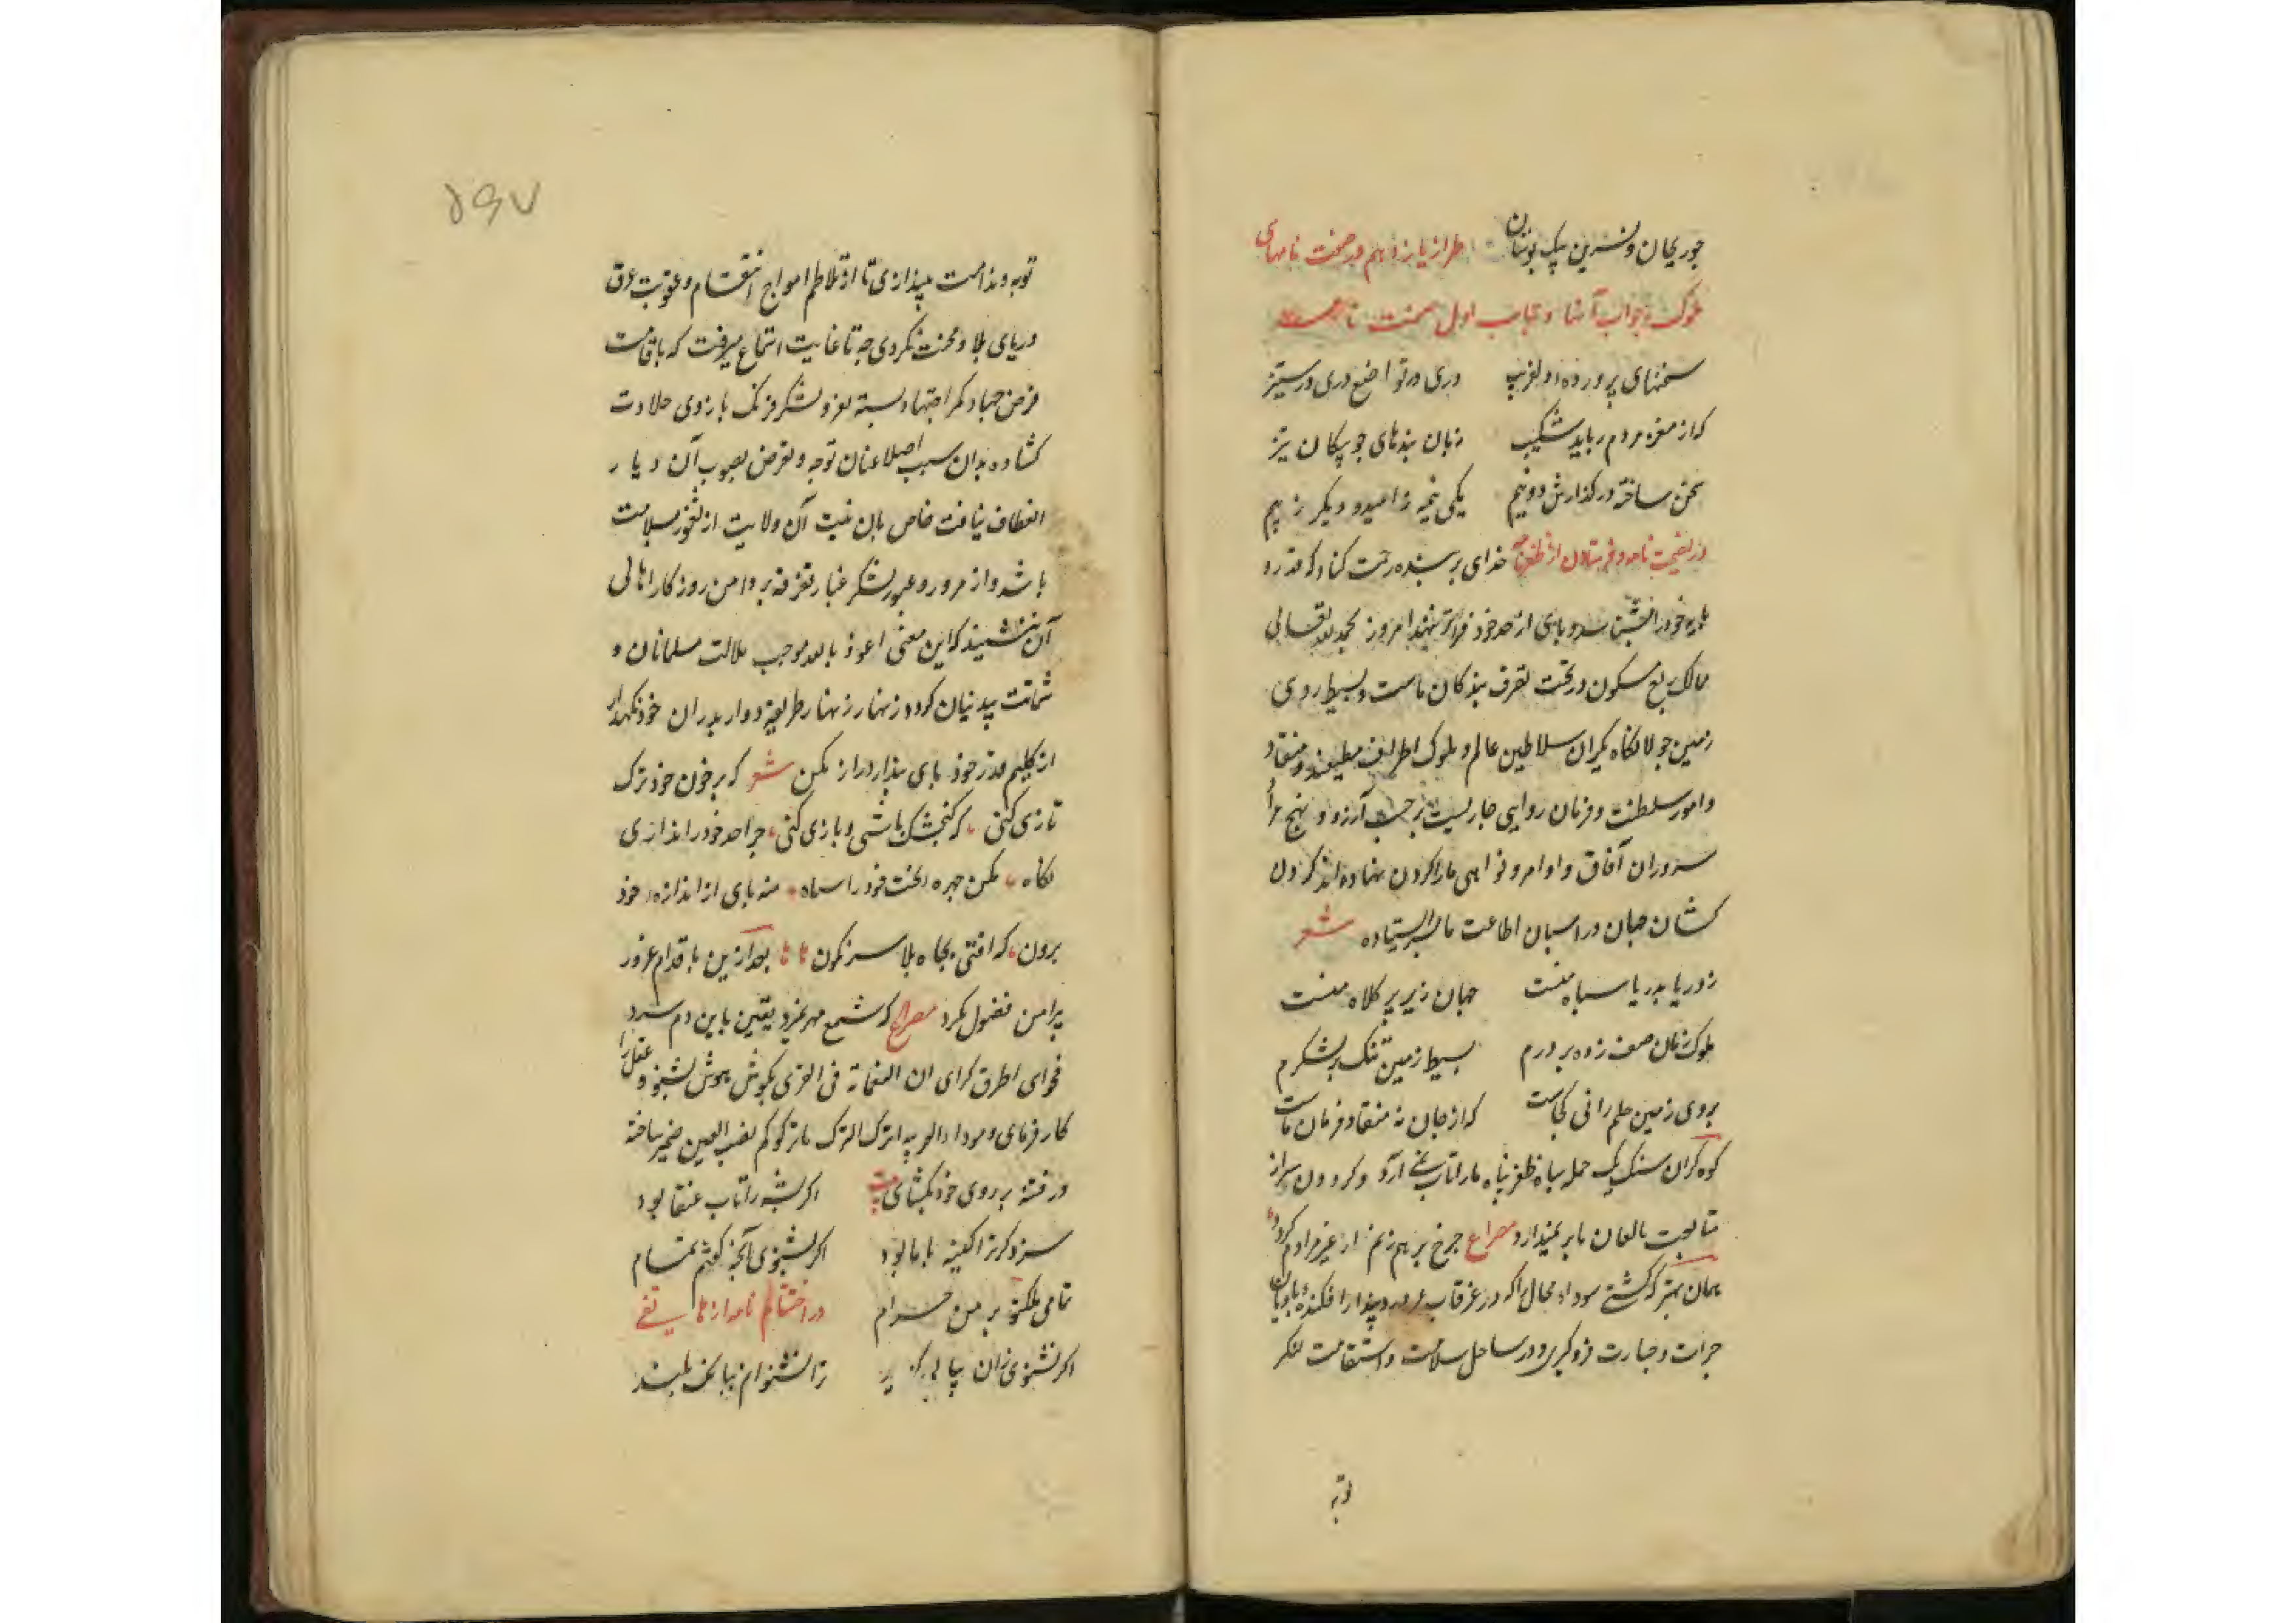 چو ریحان و نسرین یک بوستان طراز یازدهم در صفت نامهای
ملوک و جواب آنها و عتاب اول صفت نامه
سخنهای پرورده دلفریب دری در تواضع دری در ستیز
که از مغز مردم رباید شکیب زبان بندهای چو پیکان تیز
سخن ساخته در گذارش دو نیم یکی نیمه ز امید و دیگر ز بیم
در نصیحت نامه و فرستادن از ظفرنامه خدای بر بنده رحمت کناد که قدر و
پایه خود را بشناسد و پای از حد خود فراتر ننهد امروز بحمد الله تعالی
ممالک ربع مسکون در تحت تصرف بندگان ماست و بسیط روی
زمین جولانگاه یکران سلاطین عالم و ملوک اطراف مطیعند و منقاد
و امور سلطنت و فرمان روایی جاریست بر حسب آرزو و نهج مراد
سروران آفاق و اوامر و نواهی ما را گردن نهاده‌اند گردن
کشان جهان در اطاعت ما ایستاده شعر
ز دریا بدریا سپاه منست جهان زیر پر کلاه منست
ملوک زمان صف زده بر درم بسیط زمین تنگ بر لشکرم
بروی زمین حکمرانی کجاست که از جان نه منقاد فرمان ماست
کوه گران سنگ یک حمله سپاه ظفر پناه ما را تاب نمی آرد و گردون سر از
متابعت ما بر نمیدارد مصراع چرخ بر هم زنم ار غیر مرادم گردد
همان بهتر که کشتی سودای محال را که در غرقاب غرور و پندار افکنده و بادبان
جرات و جسارت فرو گیری و در ساحل سلامت و استقامت لنگر
توبه
۵۶۷
توبه و ندامت بیندازی تا از تلاطم امواج انتقام و عقوبت غرق
دریای بلا و محنت نگردی چه تا غایت استماع میرفت که باقامت
فرض جهاد کمر اجتهاد بسته بغزو لشکر فرنگ بازوی جلادت
گشاده بدان سبب اصلا عنان توجه و تعرض بصوب آن دیار
انعطاف نیافت خاص بآن نیت آن ولایت از نفور سلامت
باشد و از مرور و عبور لشکر غبار تفرقه بر دامن روزگار اهالی
آن ننشیند که این معنی اعوذ بالله موجب ملالت مسلمانان و
شماتت بیدینان گردد زنهار زنهار طریقه دوار پدران خود نگهدار
از گلیم قدر خود پای پندار دراز مکن شعر که بر خون خود ترک
تازی کنی که گنجشک باشی و بازی کنی چرا حد خود را نداری
نگاه مکن چهره بخت خود را سیاه منه پای از اندازه خود
برون که افتی بچاه بلا سرنگون بعد ازین باقدام غرور
پیرامن فضول مگرد مصراع که شمع مهر نمیرد یقین باین دم سرد
فحوای اطرق کرای ان النعامة فی القری بگوش هوش بشنو و عقل را
کار فرمای و اترک الترک ما ترکوکم نصب العین ضمیر ساخته
در فتنه بر روی خود بگشای بیت اگر پشه را تاب عنقا بود
سزد گر ترا کینه با ما بود اگر بشنوی آنچه گفتم تمام
تمامی ملکت بر من حرام در اختتام نامه از هاتفی
اگر نشنوی زان ترا نشنوانم ببانگ بلند